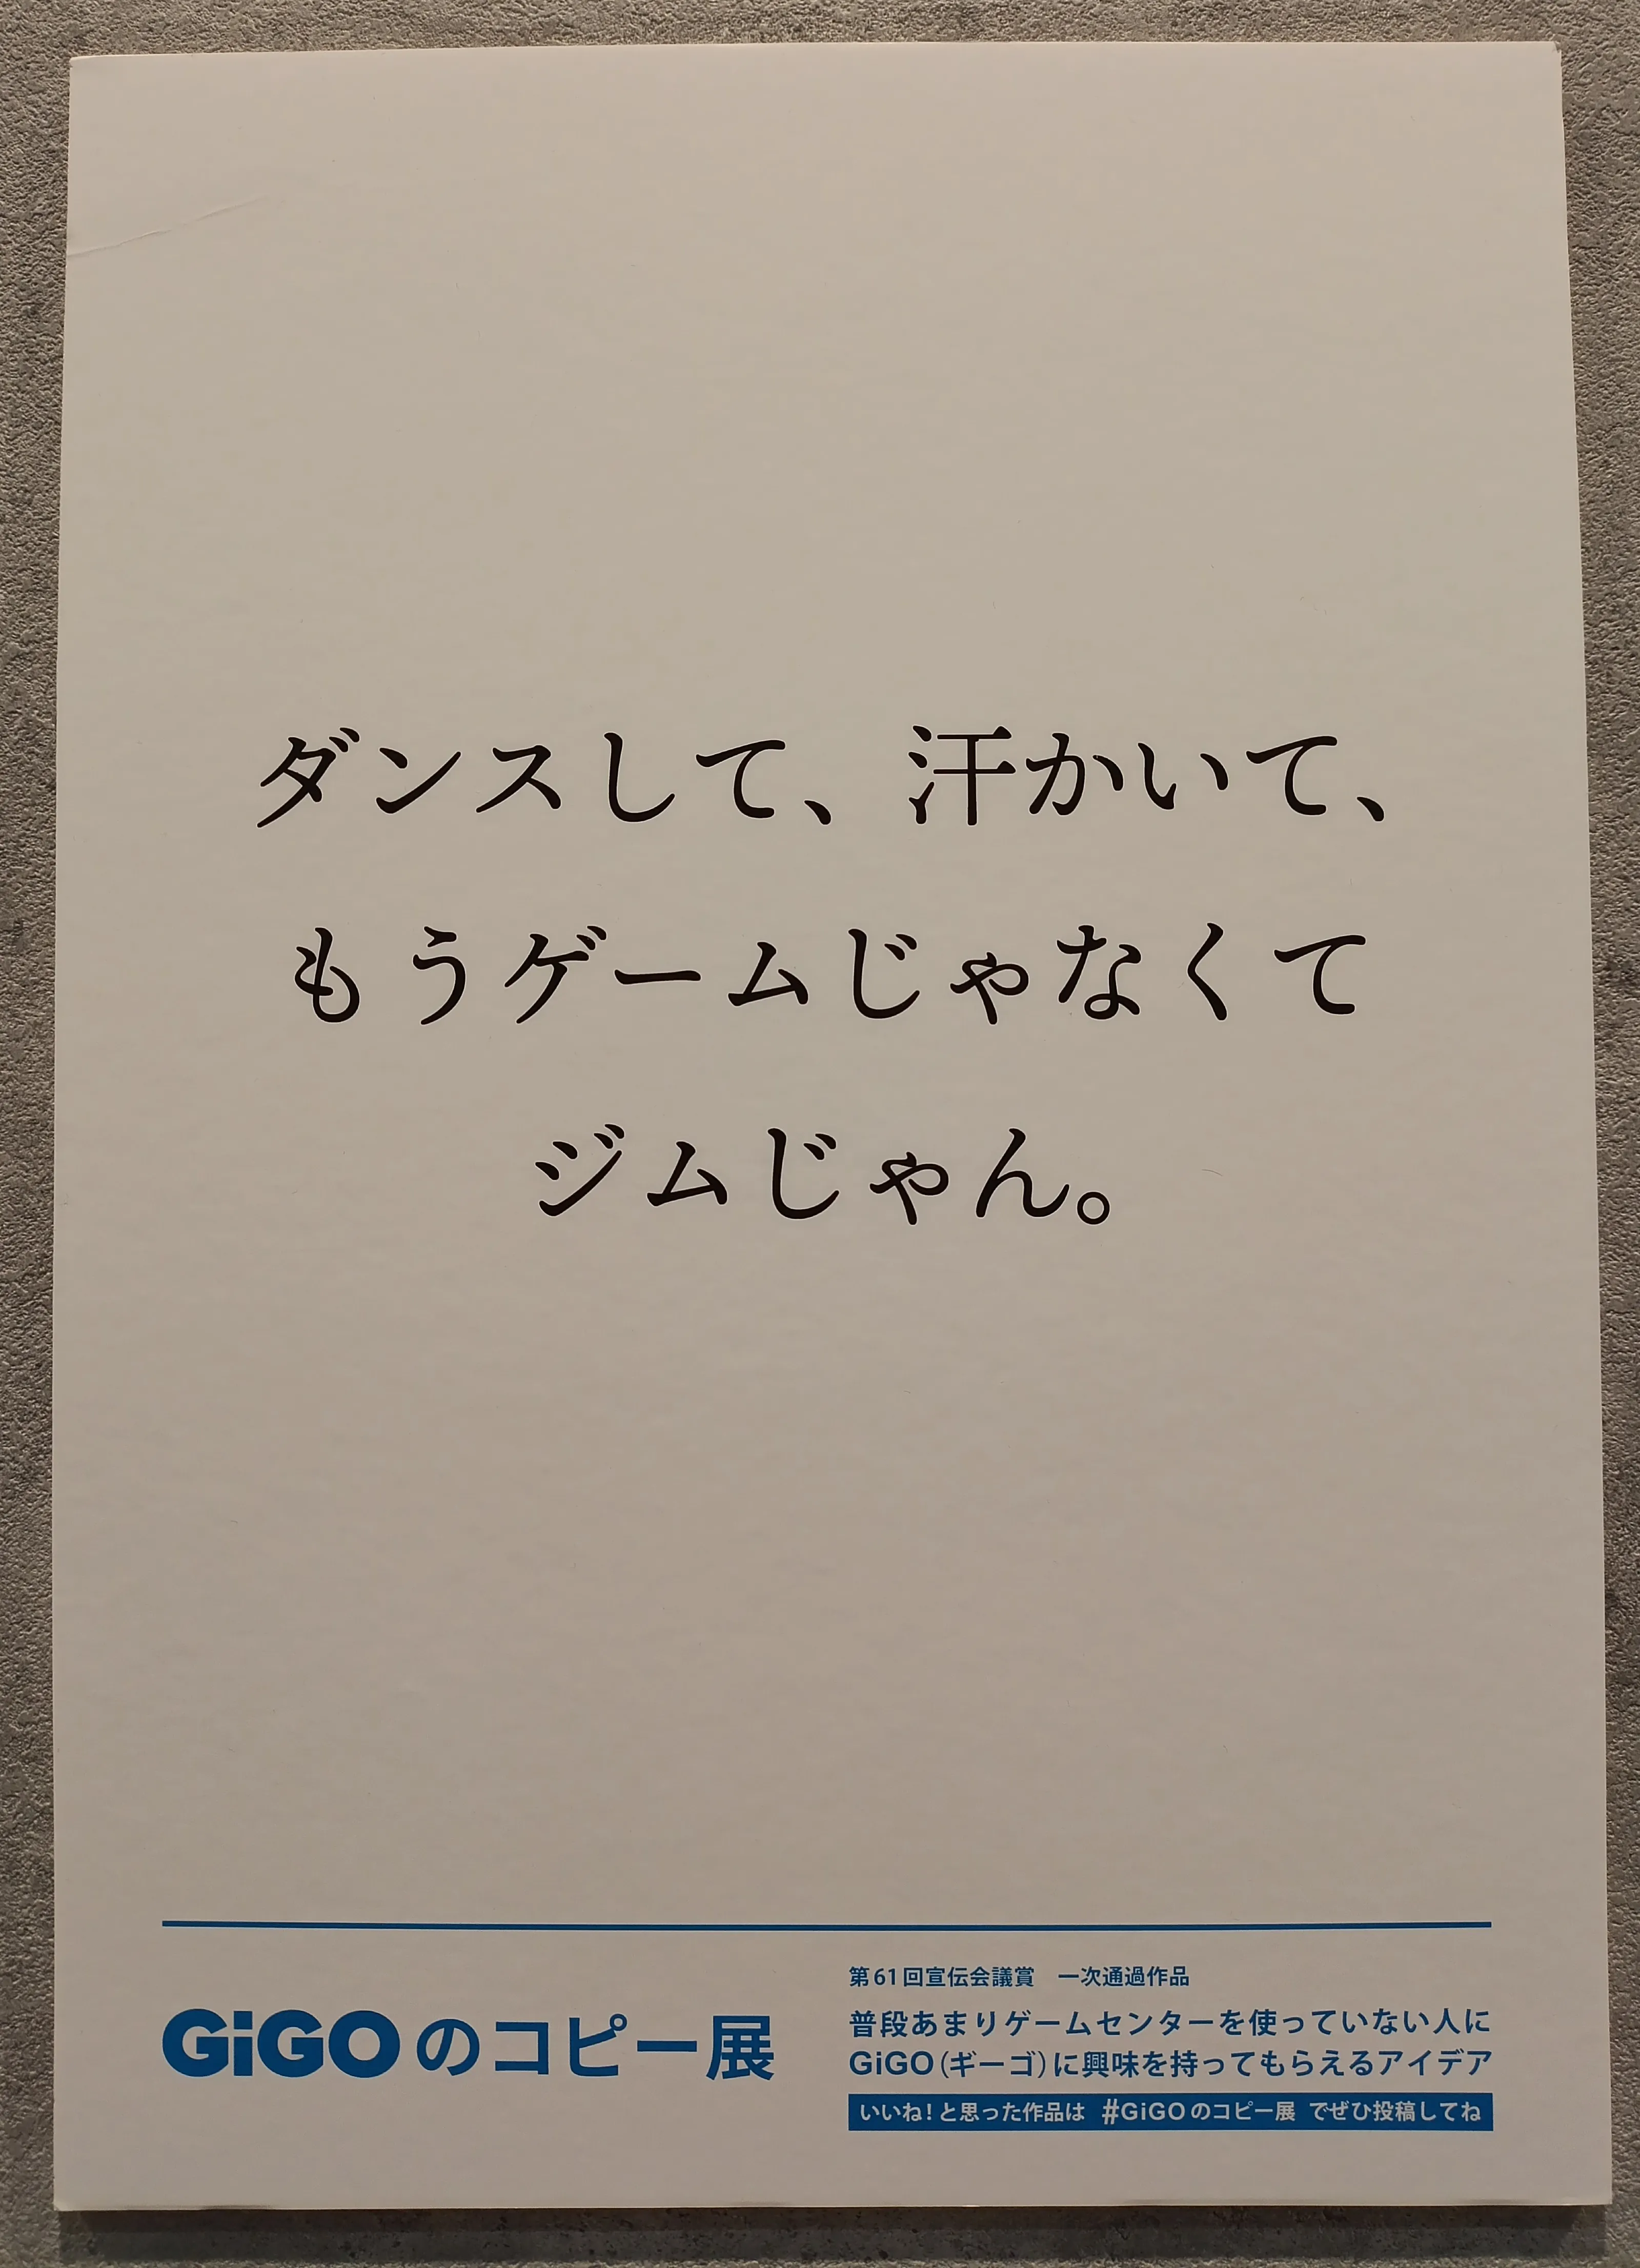 ダンスして、汗かいて、
もうゲームじゃなくて
ジムじゃん。
GiGOのコピー展
第61回宣伝会議賞　一次通過作品
普段あまりゲームセンターを使っていない人に
GiGO(ギーゴ)に興味を持ってもらえるアイデア
いいね！と思った作品は #GiGOのコピー展 でぜひ投稿してね